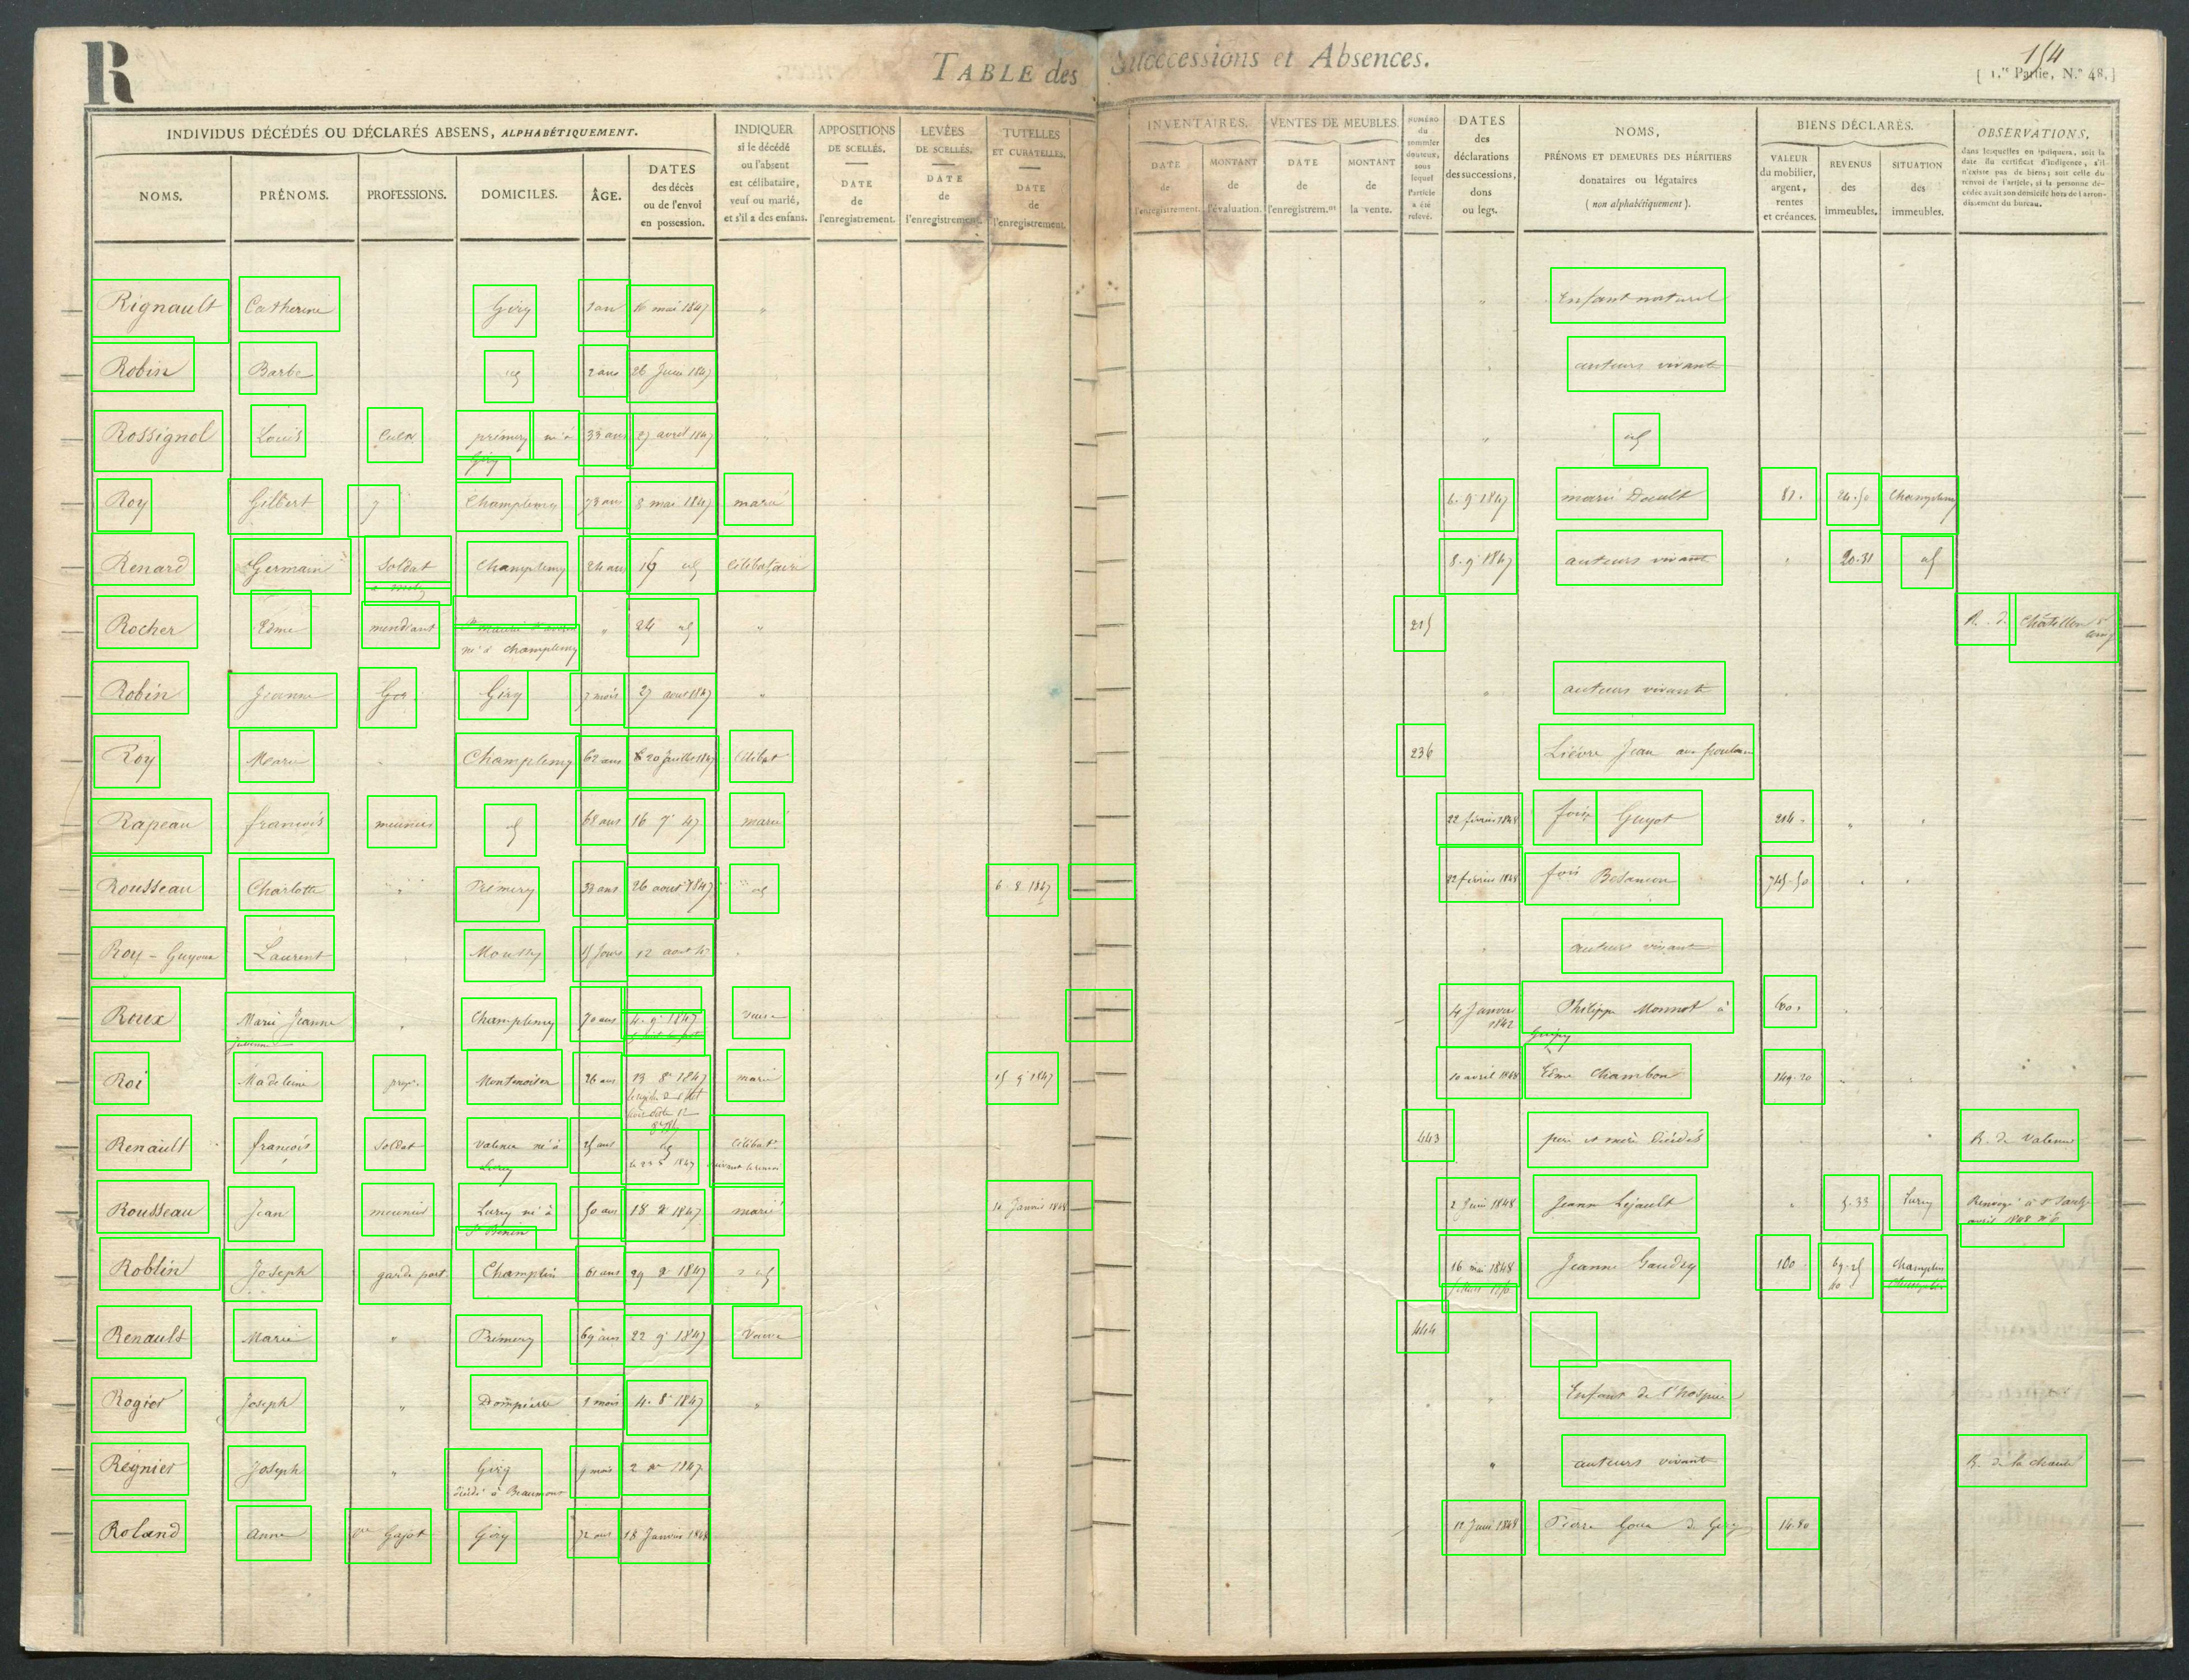 R
TABLE des Successions et Absences.
154
[ 1.re Partie, N.° 48. ]
INDIVIDUS DÉCÉDÉS OU DÉCLARÉS ABSENS, ALPHABÉTIQUEMENT.
NOMS. PRÉNOMS. PROFESSIONS. DOMICILES. ÂGE. DATES des décès ou de l'envoi en possession.
INDIQUER si le décédé ou l'absent est célibataire, veuf ou marié, et s'il a des enfans.
APPOSITIONS DE SCELLÉS. DATE de l'enregistrement.
LEVÉES DE SCELLÉS. DATE de l'enregistrement.
TUTELLES ET CURATELLES. DATE de l'enregistrement.
INVENTAIRES. DATE de l'enregistrement. MONTANT de l'évaluation.
VENTES DE MEUBLES. DATE de l'enregistrem.nt MONTANT de la vente.
NUMÉRO du sommier douteux, sous lequel l'article a été relevé.
DATES des déclarations des successions, dons ou legs.
NOMS, PRÉNOMS ET DEMEURES DES HÉRITIERS donataires ou légataires ( non alphabétiquement ).
BIENS DÉCLARÉS.
VALEUR du mobilier, argent, rentes et créances. REVENUS des immeubles. SITUATION des immeubles.
OBSERVATIONS,
dans lesquelles on indiquera, soit la date du certificat d'indigence, s'il n'existe pas de biens; soit celle du renvoi de l'article, si la personne décédée avait son domicile hors de l'arrondissement du bureau.
Rignault Catherine Giry 1 an mai 1847 " " Enfant naturel
Robin Barbe id 2 ans 26 Juin 1847 auteurs vivant
Rossignol Louis Cultr prémery né à Giry 33 ans 27 avril 1847 " id
Roy Gilbert Champlemy 78 ans 8 mai 1847 marié 6. 9 1847 marie Doult 81. 24.50 Champlemy
Renard Germain Soldat Champlemy 24 ans 19 id célibataire 8. 9 1847 auteurs vivant " 20.31 id
Rocher Edme mendiant né à Champlemy " 24 id " 215 R. de Châtillon
Robin Jeanne Giry 7 mois 27 aout 1847 " " auteurs vivant
Roy Marie Champlemy 62 ans 20 Juillet 1847 célibat 236 Lièvre Jean
Rapeau françois meunier id 68 ans 16 7 47 marié 22 février 1848 foise Guyot 214. "
Rousseau Charlotte Prémery 33 ans 26 aout 1847 id 6. 8. 1847 22 février 1848 fois Besançon 745.50
Roy - Guyoux Laurent Moussy 15 Jours 12 aout 47 auteurs vivant
Roux Marie Jeanne Champlemy 70 ans 4. 9 1847 veuve 14 Janvier 1842 Philippe Monnot à Guipy 600.
Roi Madeleine propr. Montenoison 26 ans 13 8 1847 marié 15 9 1847 10 avril 1848 Edme Chambon 149.20
Renault françois Soldat Valence né à Lurcy 25 ans id célibat. 443 père et mère décédés R. de Valence
Rousseau Jean meunier Lurcy né à St Benin 50 ans 18 1847 marié 14 Janvier 1848 2 Juin 1848 Jeanne Lejault " 5.33 Lurcy Renvoyé avril 1848 n° 6
Roblin Joseph garde port Champlin 61 ans 29 1847 id 16 mai 1848 Jeanne Gaudry 100 69.25 Champlin
Renault Marie " Prémery 69 ans 22 9 1847 Veuve 444
Rogier Joseph " Dompierre 1 mois 4. 8 1847 " Enfant de l'hospice
Régnier Joseph " Giry décédé à Beaumont 9 mois 2 1847 " auteurs vivant R. de la charité
Roland Anne ve Gajot Giry 72 ans 18 Janvier 1848 12 Juin 1848 Pierre de Giry 14.80